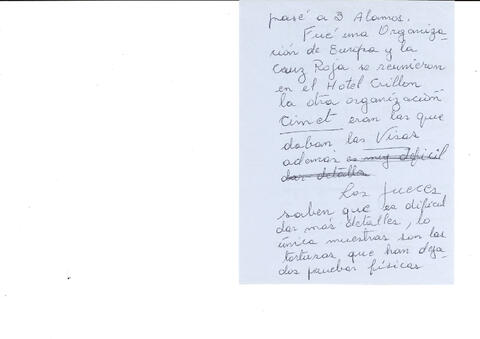 pasé a 3 Alamos.
Fué una Organiza-
ción de Europa y la
Cruz Roja se reunieron
en el Hotel Crillon
la otra organización
Cimet eran las que
daban las Visas
además es muy dificil
dar detalles
Los jueces
saben que es dificil
dar más detalles, lo
única muestras son las
torturas, que han deja-
dos pruebas físicas